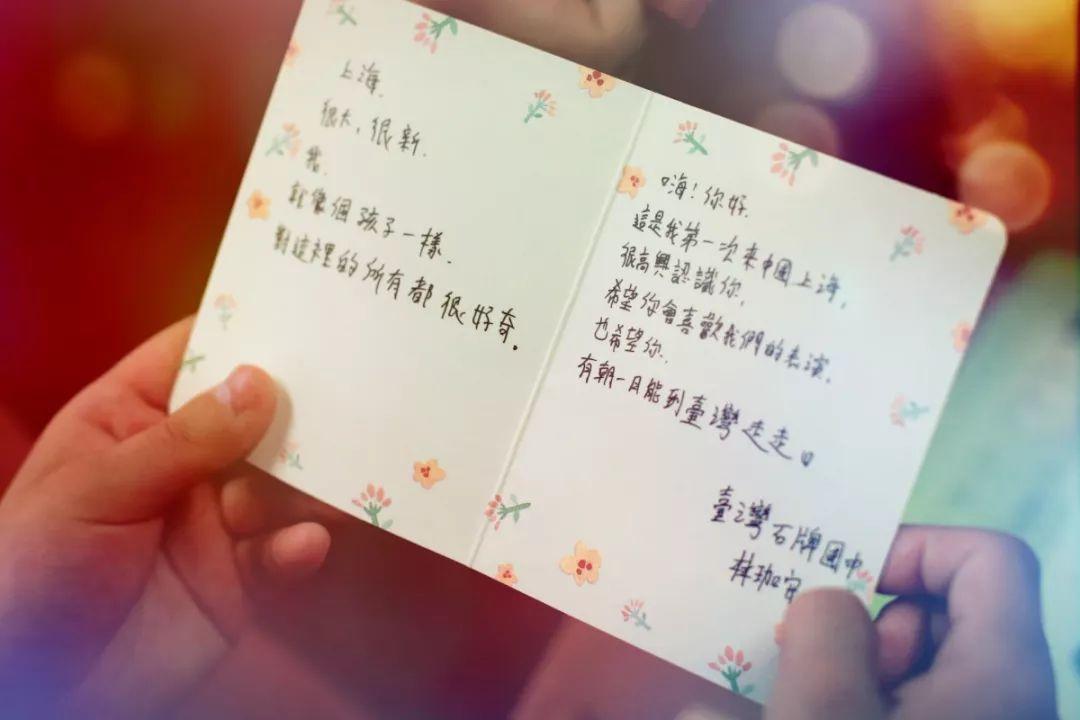 上海.
很大,很新.
我.
就像個孩子一樣.
對這裡的所有都很好奇。
嗨!你好.
這是我第一次來中國上海,
很高興認識你,
希望你會喜歡我們的表演,
也希望你.
有朝一日能到臺灣走走
臺灣石牌國中
林珈安